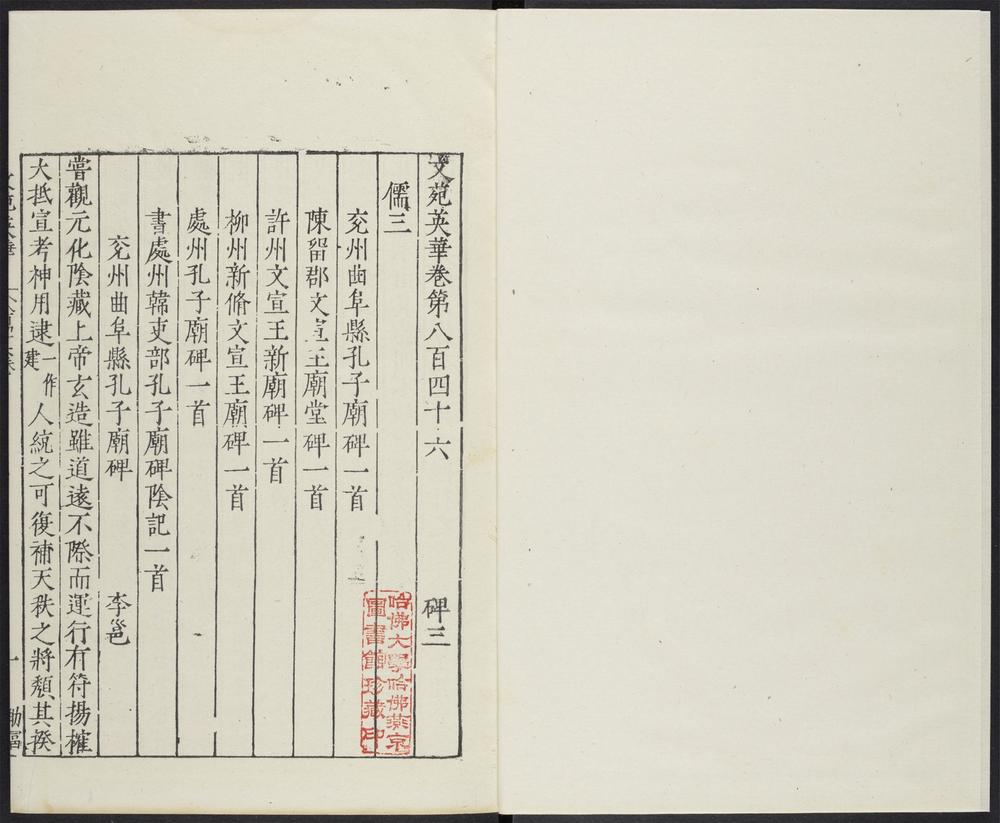 文苑英華卷第八百四十六　碑三
儒三
兖州曲阜縣孔子廟碑一首
陳留郡文宣王廟堂碑一首
許州文宣王新廟碑一首
柳州新脩文宣王廟碑一首
處州孔子廟碑一首
書處州韓吏部孔子廟碑陰記一首
兖州曲阜縣孔子廟碑　李邕
嘗觀元化陰藏上帝玄造雖道遠不際而運行有符揚搉
大抵宣考神用逮一作建人統之可復補天秩之將頽其揆
哈佛大學哈佛燕京
圖書館珍藏印